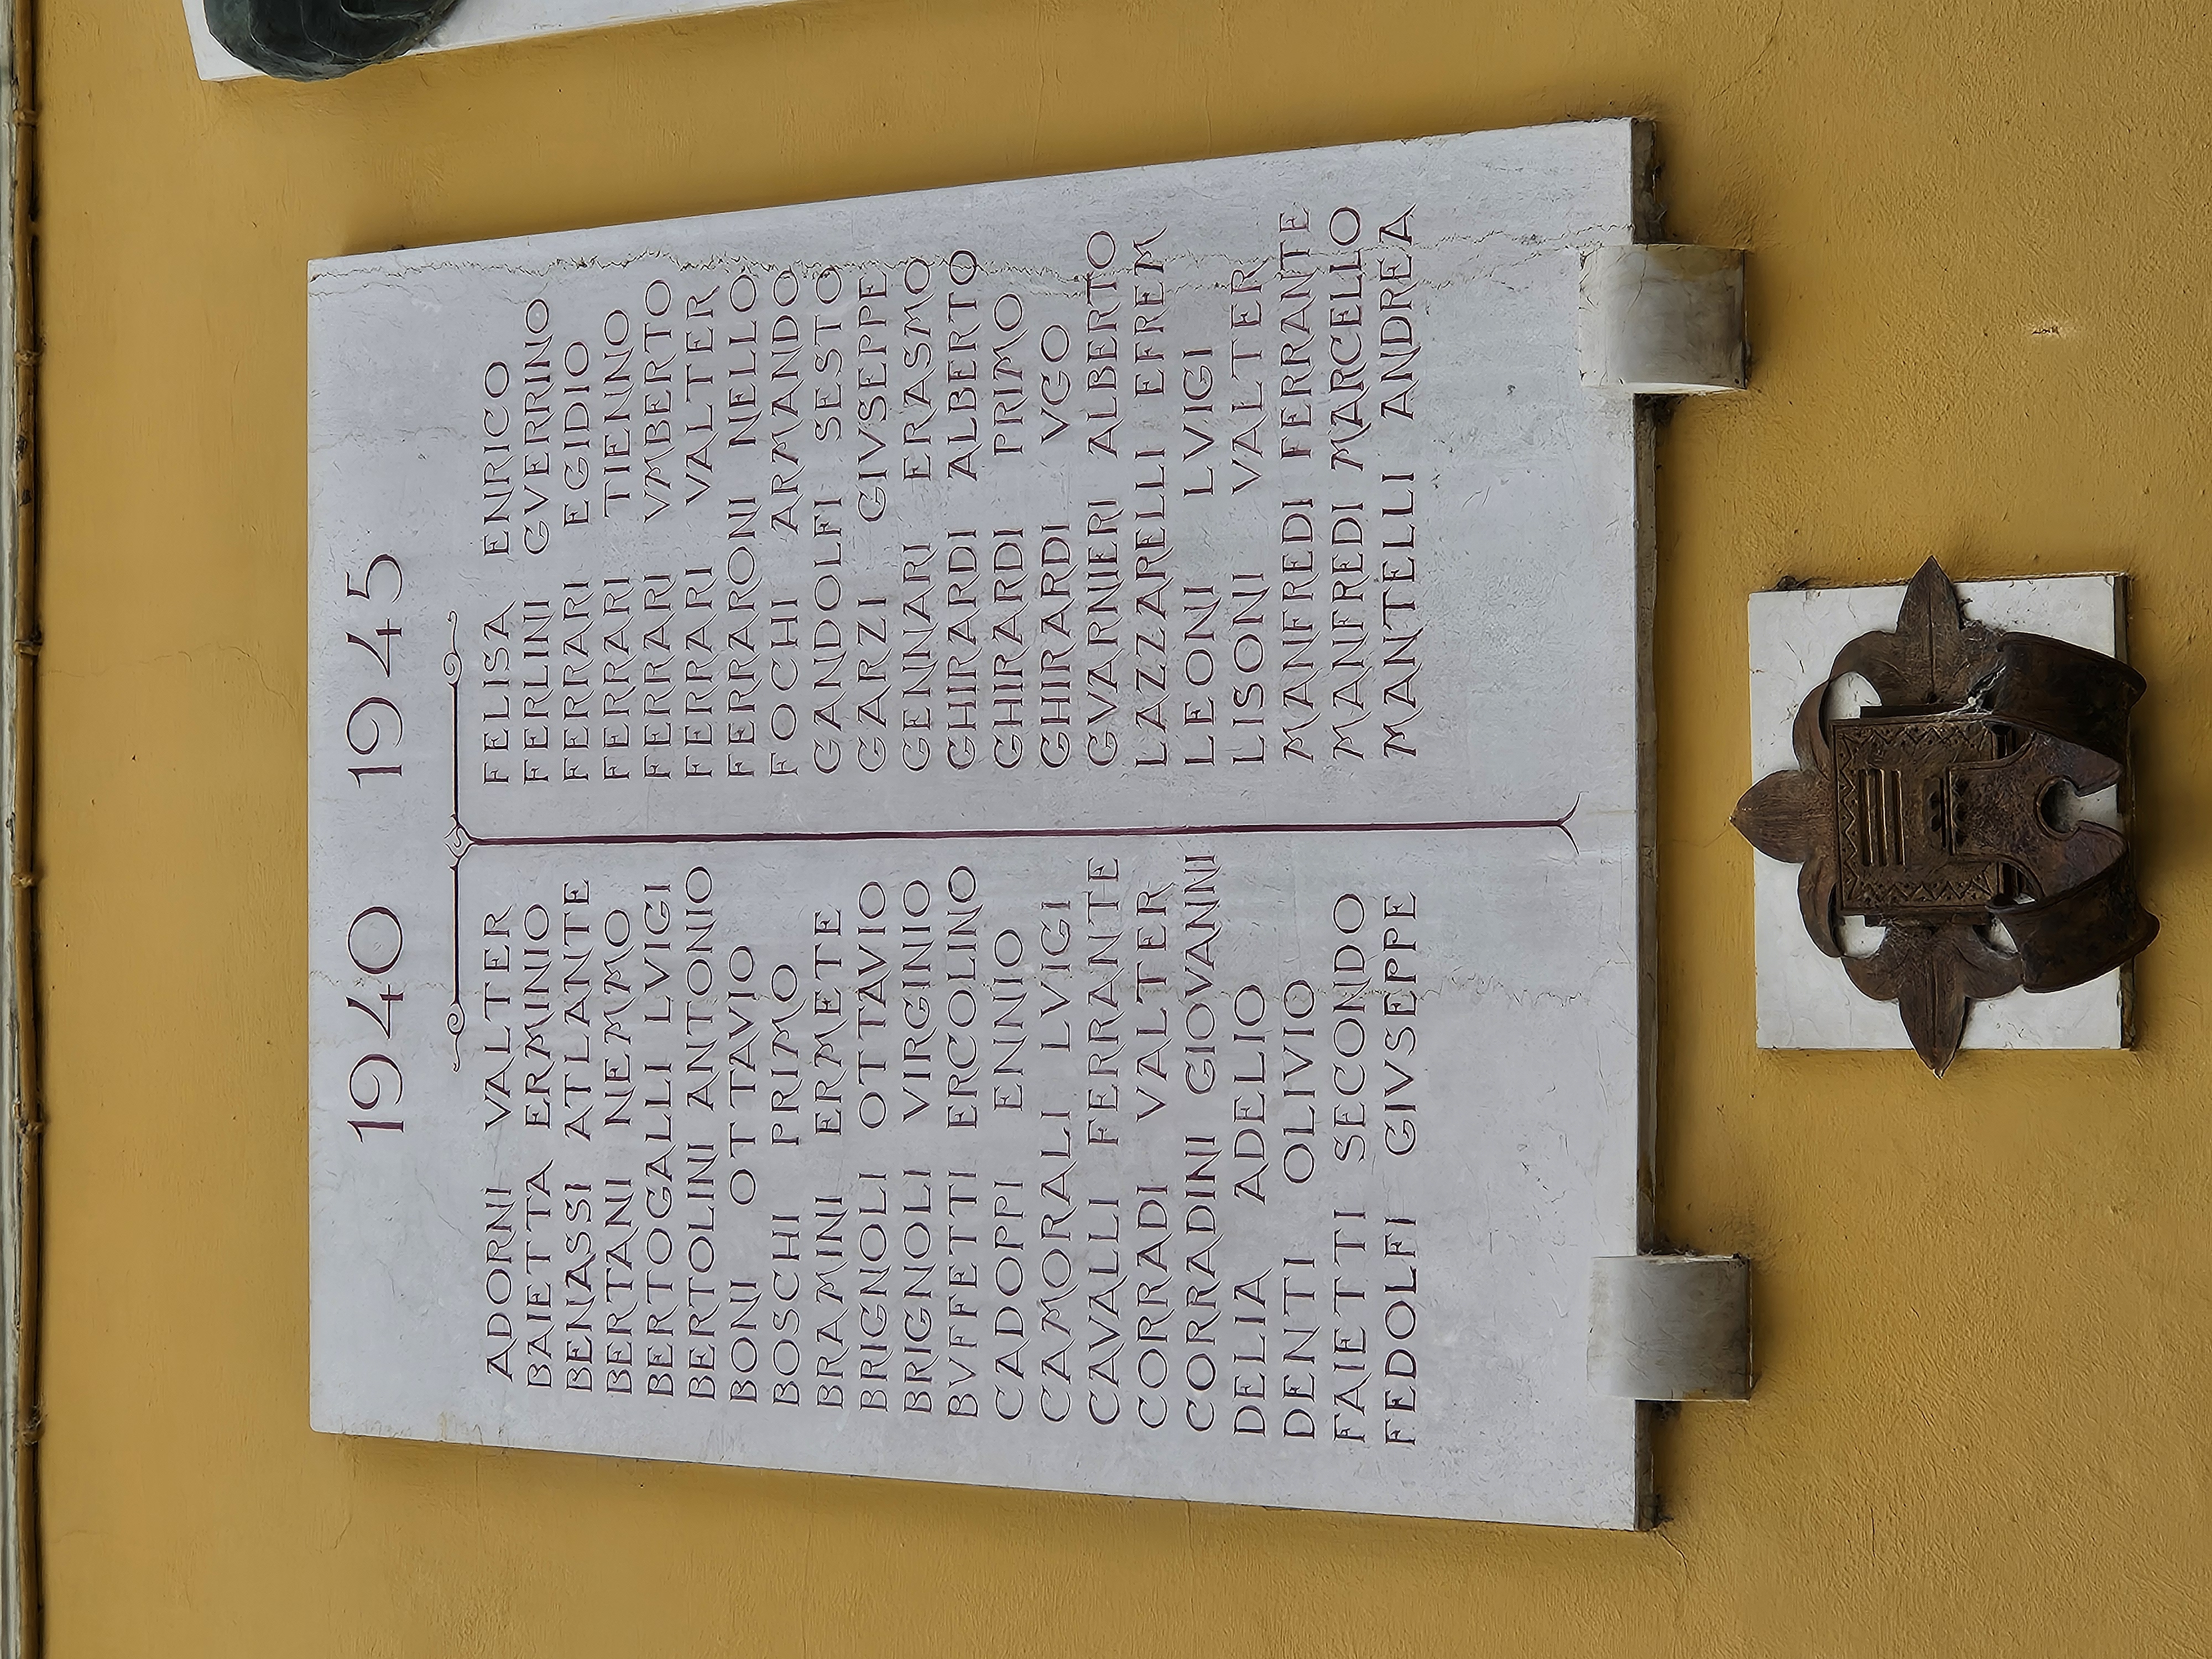 1940 1945
ADORNI VALTER
BAIETTA ERMINIO
BENASSI ATLANTE
BERTANI NEMMO
BERTOGALLI LVIGI
BERTOLINI ANTONIO
BONI OTTAVIO
BOSCHI PRIMO
BRAMINI ERMETE
BRIGNOLI OTTAVIO
BRIGNOLI VIRGINIO
BVFFETTI ERCOLINO
CADOPPI ENNIO
CAMORALI LVIGI
CAVALLI FERRANTE
CORRADI VALTER
CORRADINI GIOVANNI
DELIA ADELIO
DENTI OLIVIO
FAIETTI SECONDO
FEDOLFI GIVSEPPE
FELISA ENRICO
FERLINI GVERRINO
FERRARI EGIDIO
FERRARI TIENNO
FERRARI VMBERTO
FERRARI VALTER
FERRARONI NELLO
FOCHI ARMANDO
GANDOLFI SESTO
GARZI GIVSEPPE
GENNARI ERASMO
GHIRARDI ALBERTO
GHIRARDI PRIMO
GHIRARDI VGO
GVARNIERI ALBERTO
LAZZARELLI EFREM
LEONI LVIGI
LISONI VALTER
MANFREDI FERRANTE
MANFREDI MARCELLO
MANTELLI ANDREA